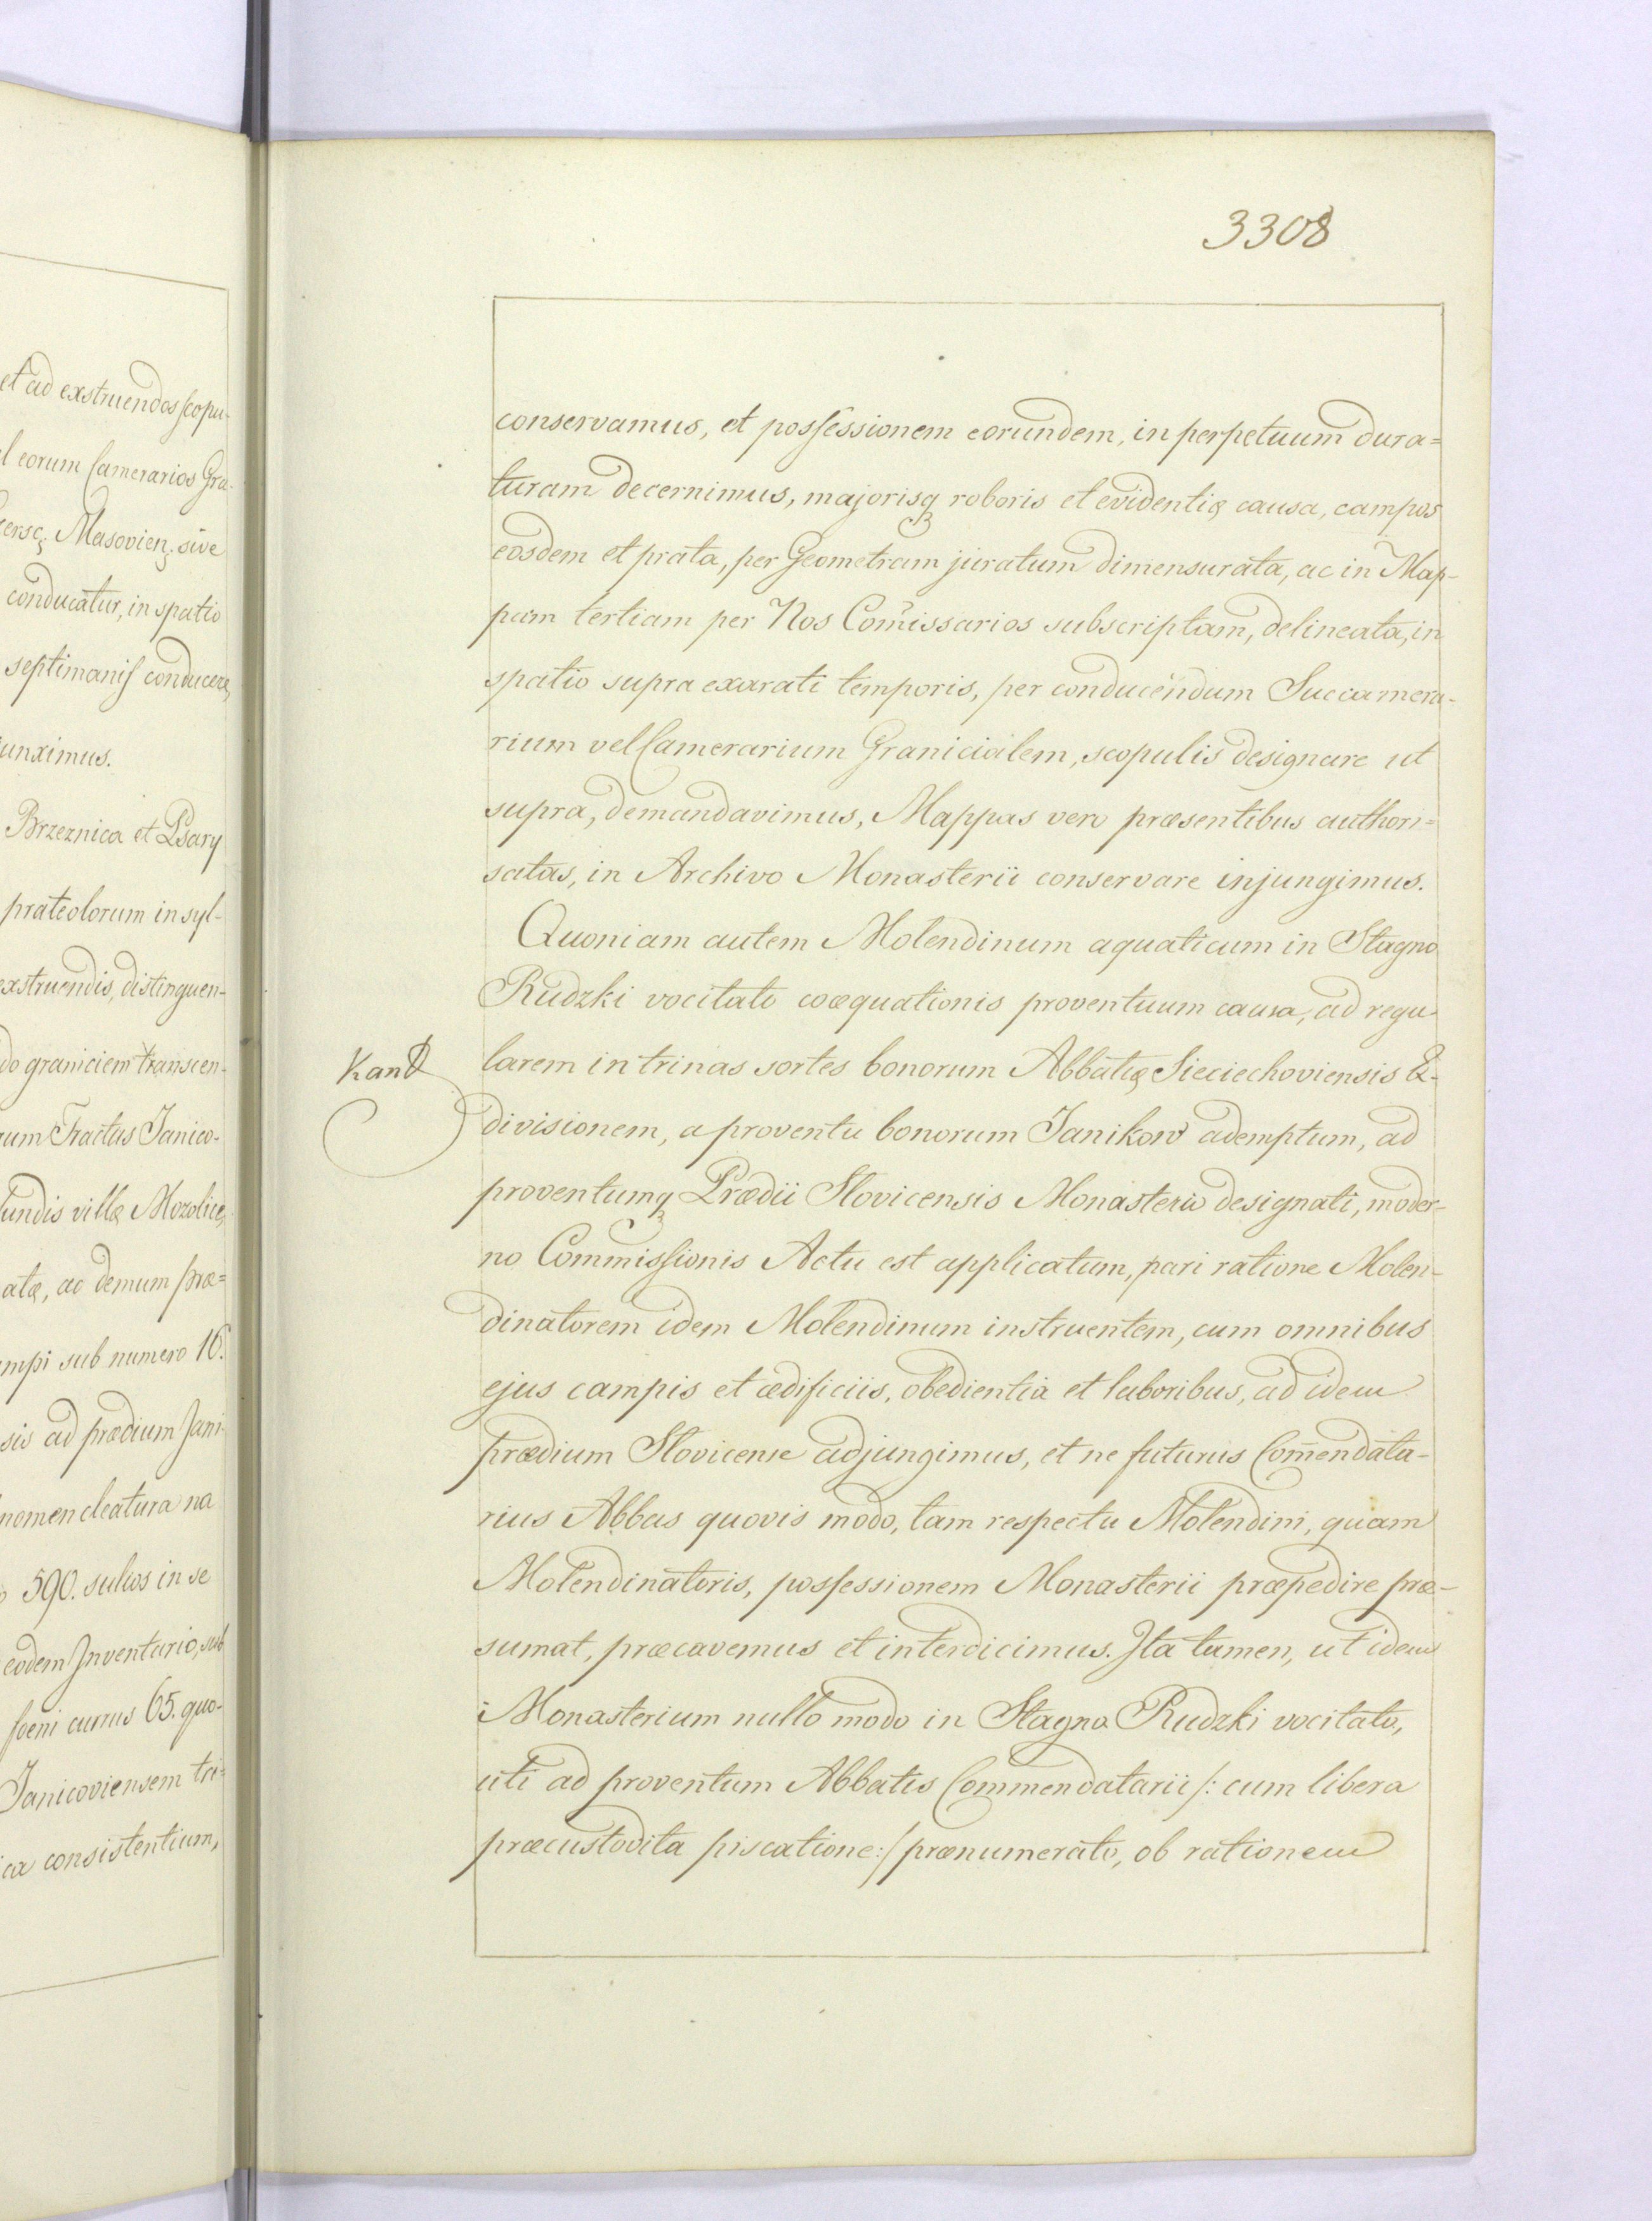 et ad exstruendos scopu-
l eorum Camerarios Gra-
Masovien: sive
conducatur, in spatio
septimanis conducere,
unximus.
Brzeznica et Psary
prateolorum in syl-
exstruendis, distinguen-
do graniciem transcen-
um Tractus Janico-
undis villę Mozolice,
atæ, ac demum præ=
mpi sub numero 16.
sis ad prædium Jani-
nomencleatura na
590. sulcos in se
eodem Inventario, sub
foeni currus 65. quo-
Janicoviensem tri-
ca consistentium,
3308
conservamus, et possessionem eorundem, in perpetuum dura=
turam decernimus, majorisq3 roboris et evidentię causa, campos
eosdem et prata, per Geometram juratum dimensurata, ac in Map-
pam tertiam per Nos Com̃issarios subscriptam, delineata, in
spatio supra exarati temporis, per conducendum Succamera-
rium vel Camerarium Granicialem, scopulis designare ut
supra, demandavimus, Mappas vero præsentibus authori=
satas, in Archivo Monasterii conservare injungimus.
Quoniam autem Molendinum aquaticum in Stagno
Rudzki vocitato coæquationis proventuum causa, ad regu-
Kant
larem in trinas sortes bonorum Abbatię Sieciechoviensis
divisionem, a proventu bonorum Janikow ademptum, ad
proventumq3 Prædii Slovicensis Monasterio designati, moder-
no Commissionis Actu est applicatum, pari ratione Molen-
dinatorem idem Molendinum instruentem, cum omnibus
ejus campis et ædificiis, obedientia et laboribus, ad idem
prædium Slovicense adjungimus, et ne futurus Com̃endata-
rius Abbas quovis modo, tam respectu Molendini, quam
Molendinatoris, possessionem Monasterii præpedire præ-
sumat, præcavemus et interdicimus. Ita tamen, ut idem
Monasterium nullo modo in Stagno Rudzki vocitato,
uti ad proventum Abbatis Commendatarii /: cum libera
præcustodita piscatione :/ prænumerato, ob rationem